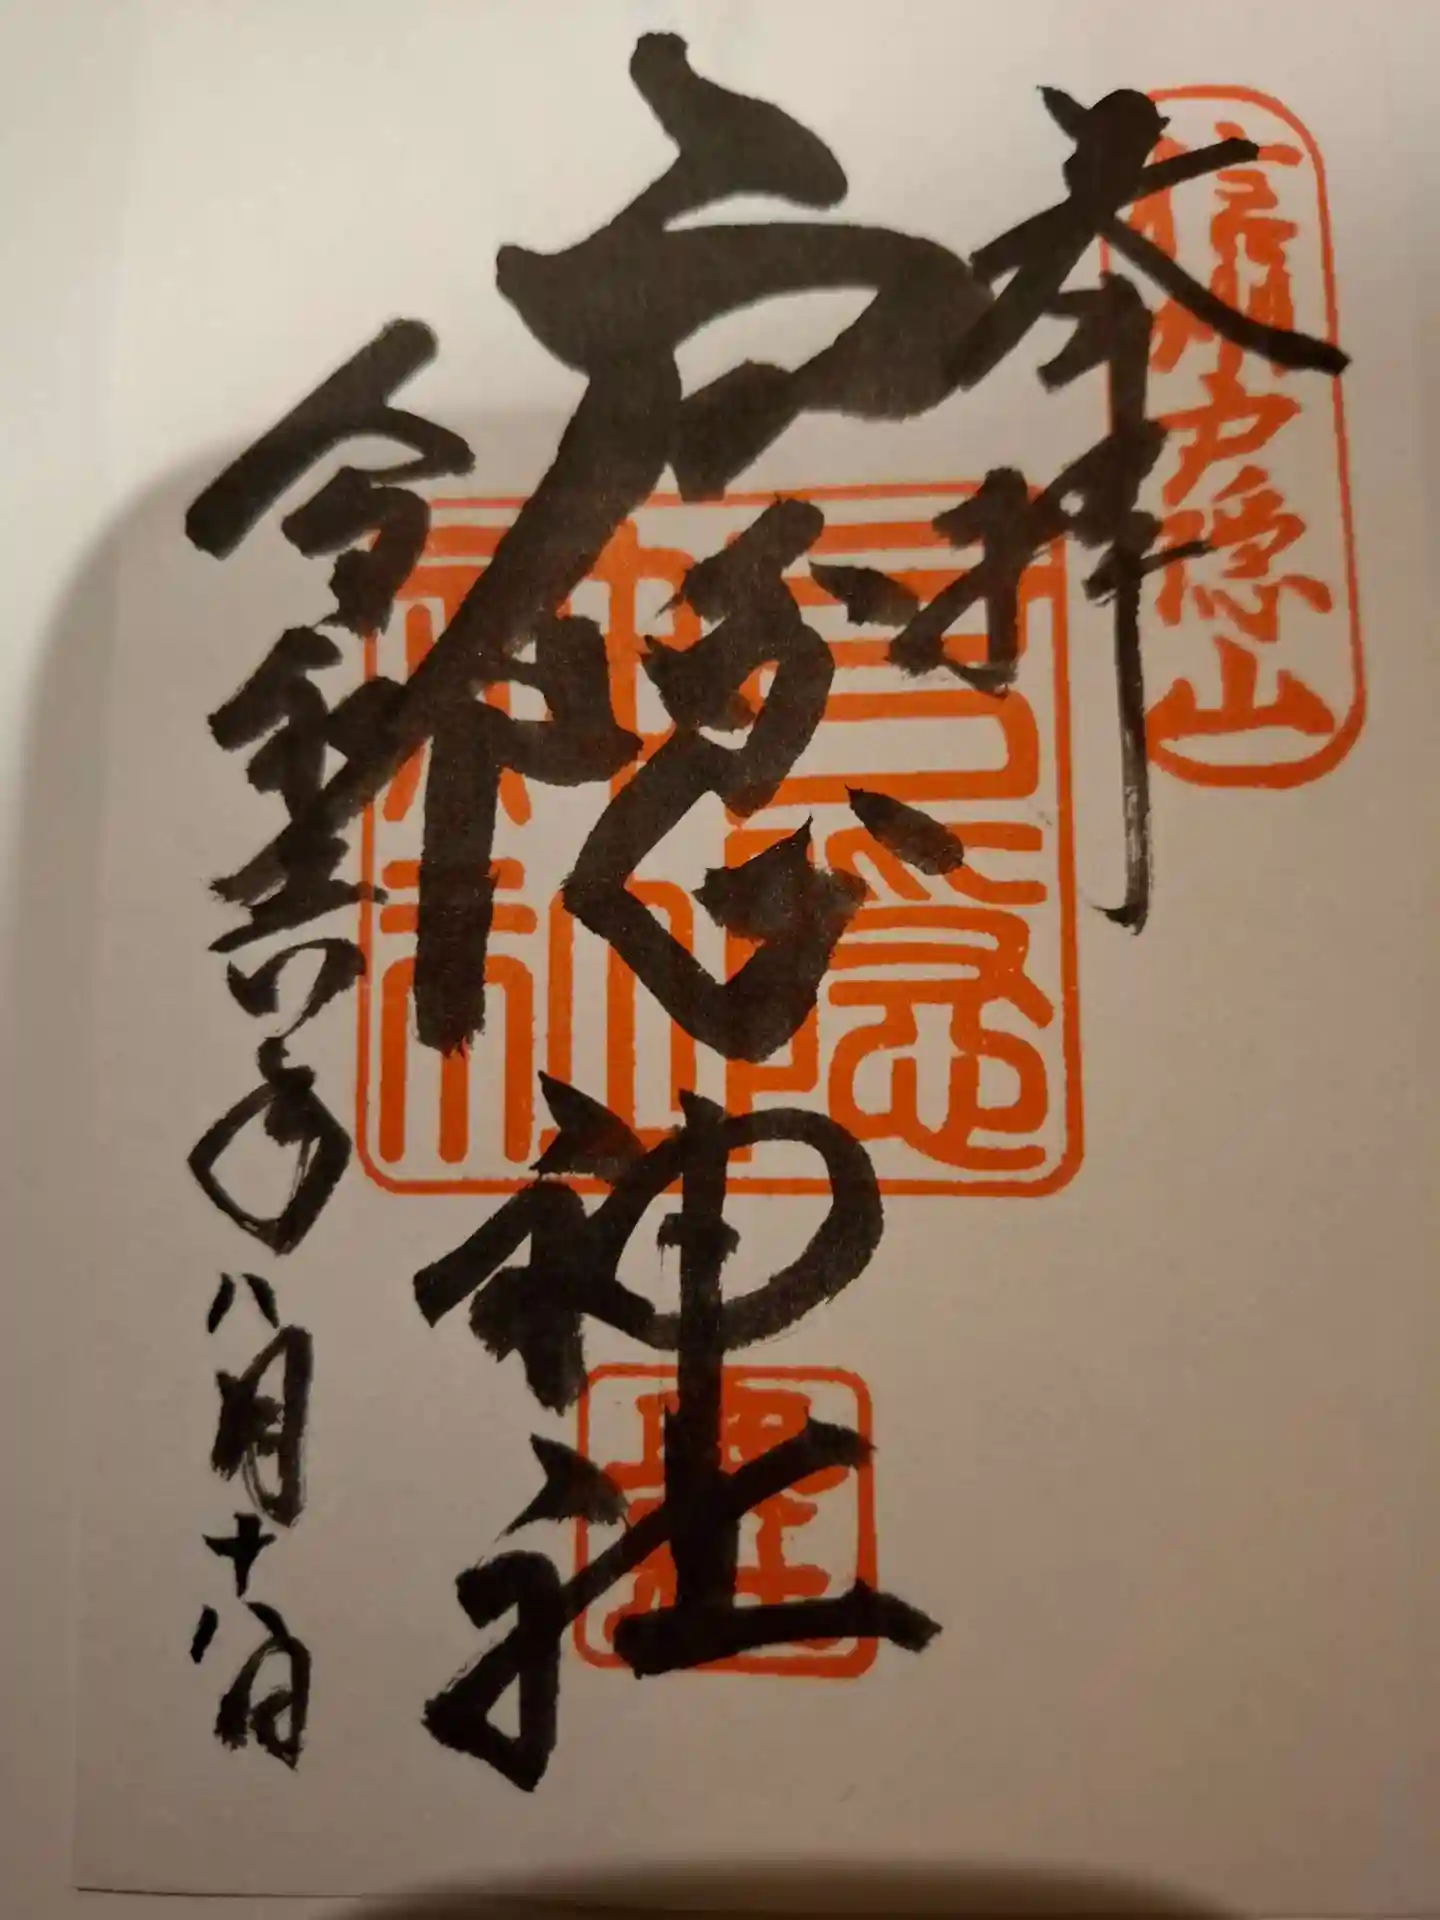 信州戸隠山
奉拝
戸隠神社
戸隠神社
令和六年八月十八日